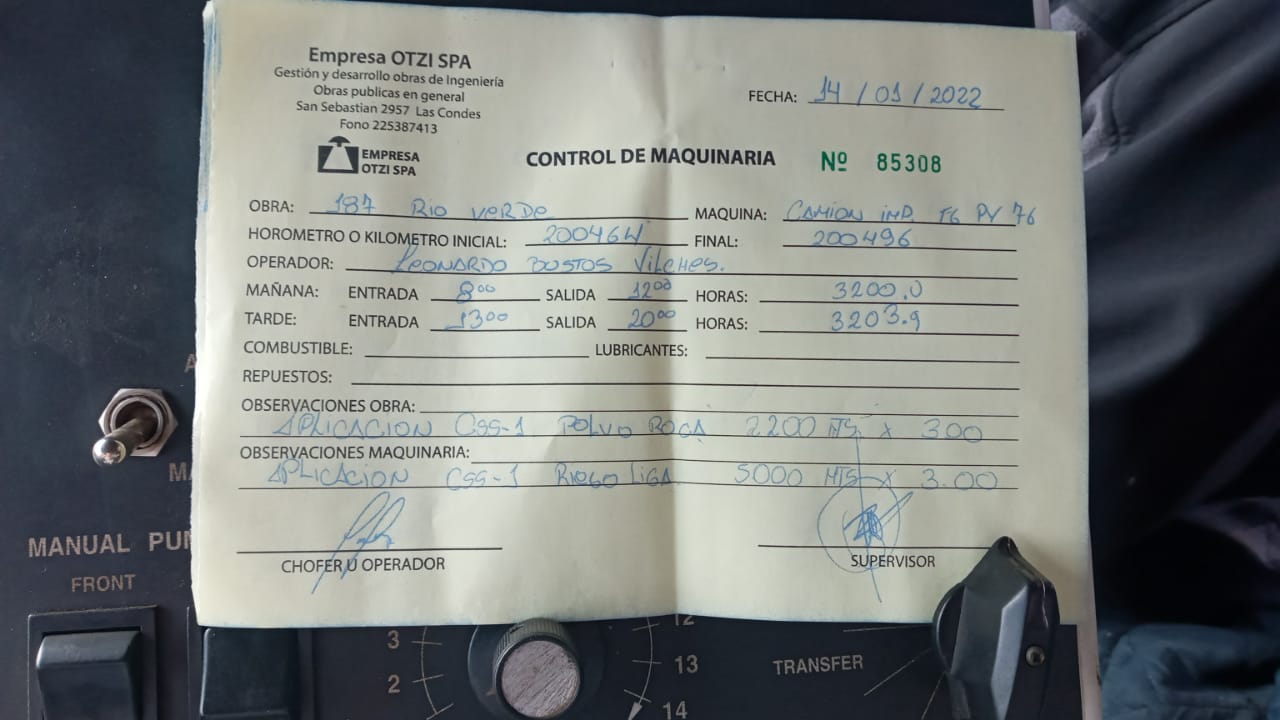 Empresa OTZI SPA
Gestión y desarrollo obras de Ingeniería
Obras publicas en general
San Sebastian 2957 Las Condes
Fono 225387413
EMPRESA
OTZI SPA
FECHA: 14 / 01 / 2022
CONTROL DE MAQUINARIA Nº 85308
OBRA: 187 Rio Verde MAQUINA: CAMION IMP. FG PV 76
HOROMETRO O KILOMETRO INICIAL: 200464 FINAL: 200496
OPERADOR: LEONARDO BUSTOS VILCHES.
MAÑANA: ENTRADA 8:00 SALIDA 12:00 HORAS: 3200.0
TARDE: ENTRADA 13:00 SALIDA 20:00 HORAS: 3203.9
COMBUSTIBLE: LUBRICANTES:
REPUESTOS:
OBSERVACIONES OBRA:
APLICACION CSS-1 POLVO ROCA 2.200 MTS x 3.00
OBSERVACIONES MAQUINARIA:
APLICACION CSS-1 RIEGO LIGA 5000 MTS x 3.00
CHOFER U OPERADOR SUPERVISOR
MANUAL
FRONT
3
2
12
13
14
TRANSFER